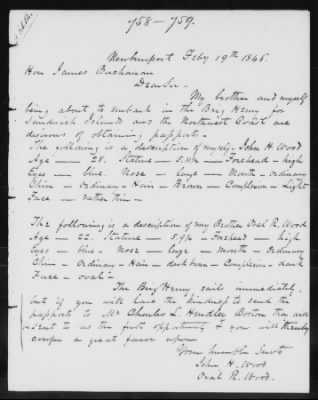 758 — 759.
Newburyport Feby 19th 1846.
Hon James Buchanan
Dear Sir.
My brother and myself
being about to embark in the Brig Henry for
Sandwich Islands and the Northwest Coast are
desirous of obtaining passports —
The following is a description of myself. John H. Wood
Age — 28. Stature — 5.11 — Forehead — high
Eyes — blue. Nose — large — Mouth — ordinary
Chin — ordinary — Hair — Brown — Complexion — light
Face — rather thin —
The following is a description of my Brother Oval R. Wood
Age — 22. Stature — 5.9 — Forehead — high
Eyes — blue. — Nose — large — Mouth — Ordinary
Chin — Ordinary — Hair — dark brown — Complexion — dark
Face — oval —
The Brig Henry sails immediately,
but if you will have the kindness to send the
passports to Mr Charles L. Hundley Boston
sent to us the first oppotunity & you will thereby
a great favor upon
Your humble Servts
John H. Wood
Oval R. Wood.